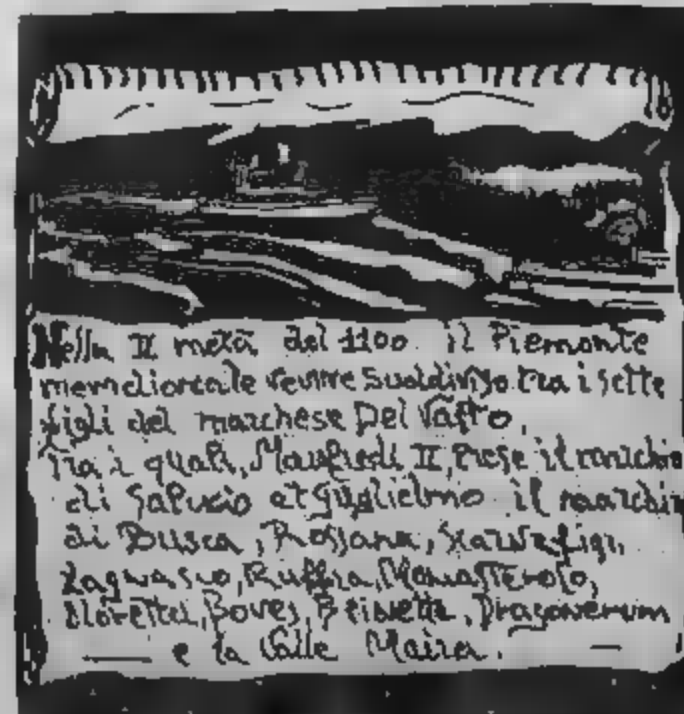 Nella II metà del 1100 il Piemonte
meridionale venne suddiviso tra i sette
figli del marchese Del Vasto,
Tra i quali, Manfredi II, Prese il
di et Guglielmo il
di Busca, Rossana, Scarnafigi,
Lagnasco, Ruffia, Monasterolo,
Boves, Dragonerum
e la Valle Maira.